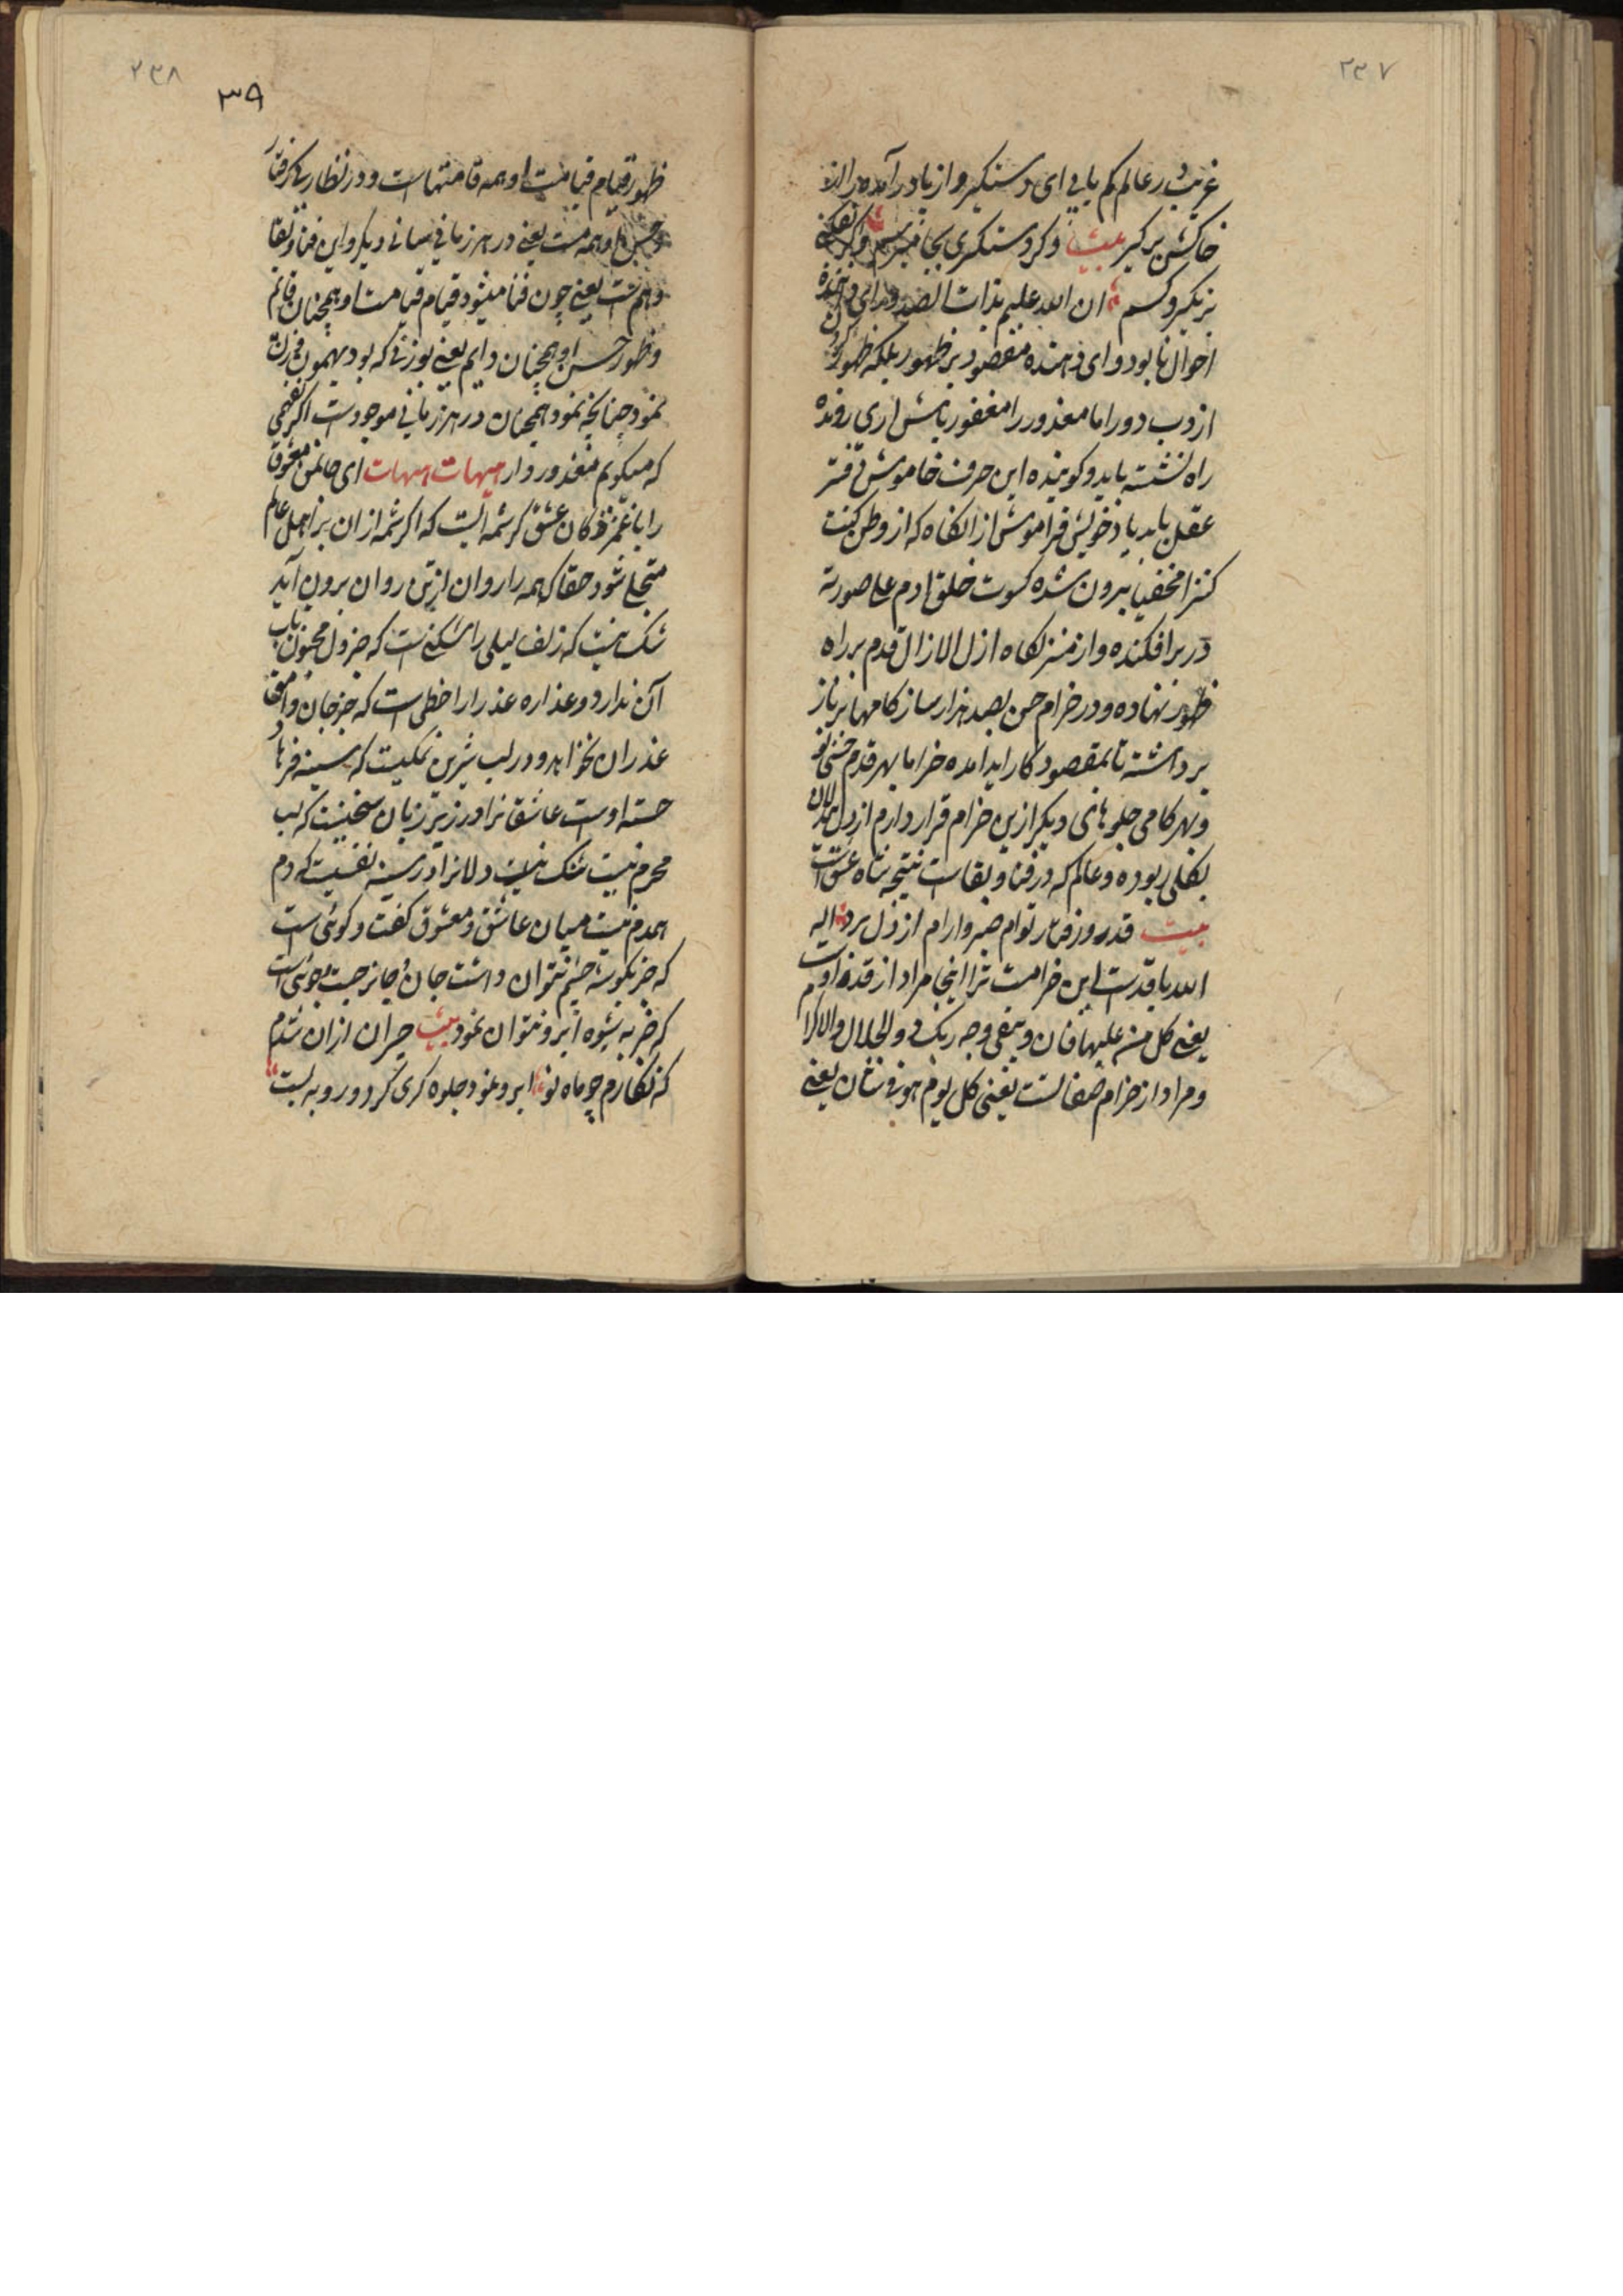 ۲۳۷
غریب در عالم کم یابی ای دستگیر و از پا در آمده را از
خاکش برگیر بیت و کر دستگری بجا
بزرگیر و کسم ان الله علیم بذات الصدور ای دهنده
احوال نابود و ای دهنده مقصود بر ظهور بلکه ظهور
ازوب دور اما معذور را مغفور باش اری رونده
راه نشسته باید و کوینده این حرف خاموش دفتر
عقل باید یاد خویش فراموش از انکاه که از وطن کنت
کنزا مخفیا بیرون شده کسوت خلق ادم علی صورته
در بر افکنده و از منزلکاه ازل الازال قدم بر راه
ظهور نهاده و در خرام حسن بصد هزار ساز کامها بر ناز
برداشته تا بمقصود کار ایدامده خراما بهر قدم
و بهر کامی جلوهای دیگر ازین خرام قرار دارم از دل
بکلی ربوده و عالم که در فنا و بقاست نتیجه نشاه عشق است
بیت قد و رفتار توام صبر و ارام از دل برد الیه
الله با قدست این خرامت ترا اینجا مراد از قد ذات اوست
یعنی کل من علیها فان و یبقی وجه ربک ذو الجلال والاکرام
و مراد از خرام صفاتست یعنی کل یوم هو فی شان یعنی
۲۳۸
۳۹
ظهور قیام قیامت او همه قامتهاست و در نظار
و حسن او همه مست یعنی در هر زمانی بسانی دیگر و این فنا و بقا
و هم است یعنی چون فنا میشود قیام قیامت او همچنان قائم
و ظهور حسن او همچنان دایم یعنی بوزنی که بود بهمون
نمود چنانچه نمود همچنان در هر زمانی موجودست اگر فهمی
که میکویم معذور دار هیهات هیهات ای جانمن معشوق
را با غمزدکان عشق کرشمه ایست که اگر شمه ازان بر اهل عالم
متجلی شود حقا که همه را روان از تن روان برون آید
شک نیست که زلف لیلی را شکنی است که جز دل مجنون تاب
آن ندارد و عذاره عذرا را خطی است که جز جان وامق
عذر ان نخواهد و در لب شیرین نمکیست که سینه فرهاد
خسته اوست عاشقانرا در زیر زبان سخنیست که لب
محرم نیست تنک دلانرا در سینه نفسیست که دم
همدم نیست میان عاشق و معشوق کفت و کوئی است
که جز بکوشه چشم نتوان داشت جان و جانرا جست جوئی است
که جز به شیوه ابرو نتوان نمود بیت حیران ازان شدم
که نکارم چو ماه نو ابرو نمود جلوه کری کرد و رو به بست